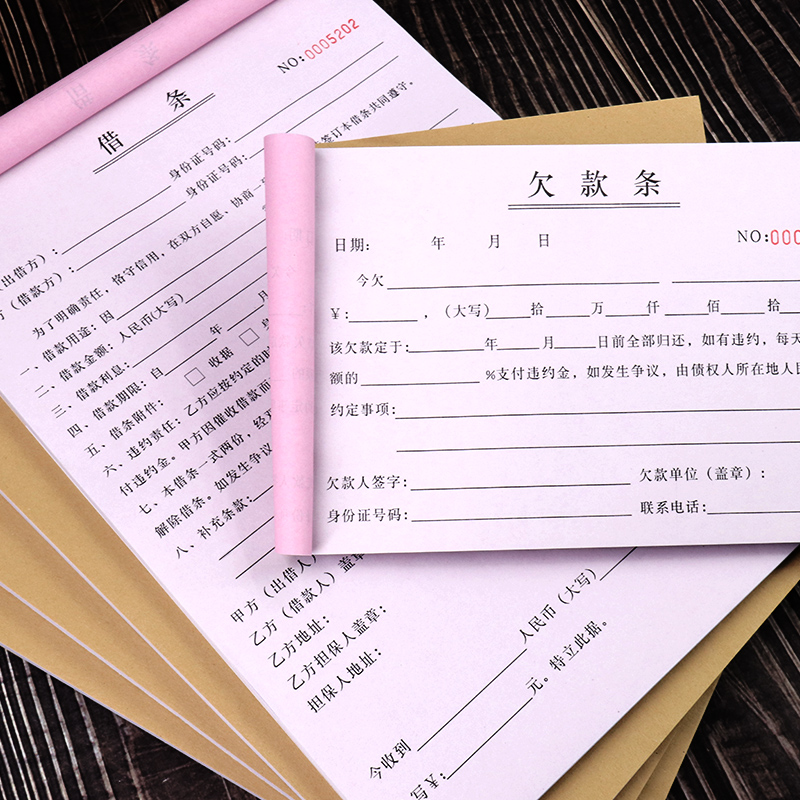 借 条
NO:0005202
(出借方):
身份证号码:
方(借款方):
身份证号码:
为了明确责任,恪守信用,在双方自愿、协商一
签订本借条共同遵守。
一、借款用途:因
二、借款金额:人民币(大写)
三、借款利息:
年 月
四、借款期限:自
五、借条附件: □ 收据 □
六、违约责任:乙方应按约定的时
付违约金。甲方因催收借款而
七、本借条一式两份,经
解除借条。如发生争议
八、补充条款:
甲方(出借人)
乙方(借款人)盖章
乙方地址:
乙方担保人盖章:
担保人地址:
今收到
人民币(大写)
写¥:
元。特立此据。
欠 款 条
日期: 年 月 日
NO:000
今欠
¥: ,(大写) 拾 万 仟 佰 拾
该欠款定于: 年 月 日前全部归还,如有违约,每天
额的 %支付违约金,如发生争议,由债权人所在地人民
约定事项:
欠款人签字: 欠款单位(盖章):
身份证号码: 联系电话: